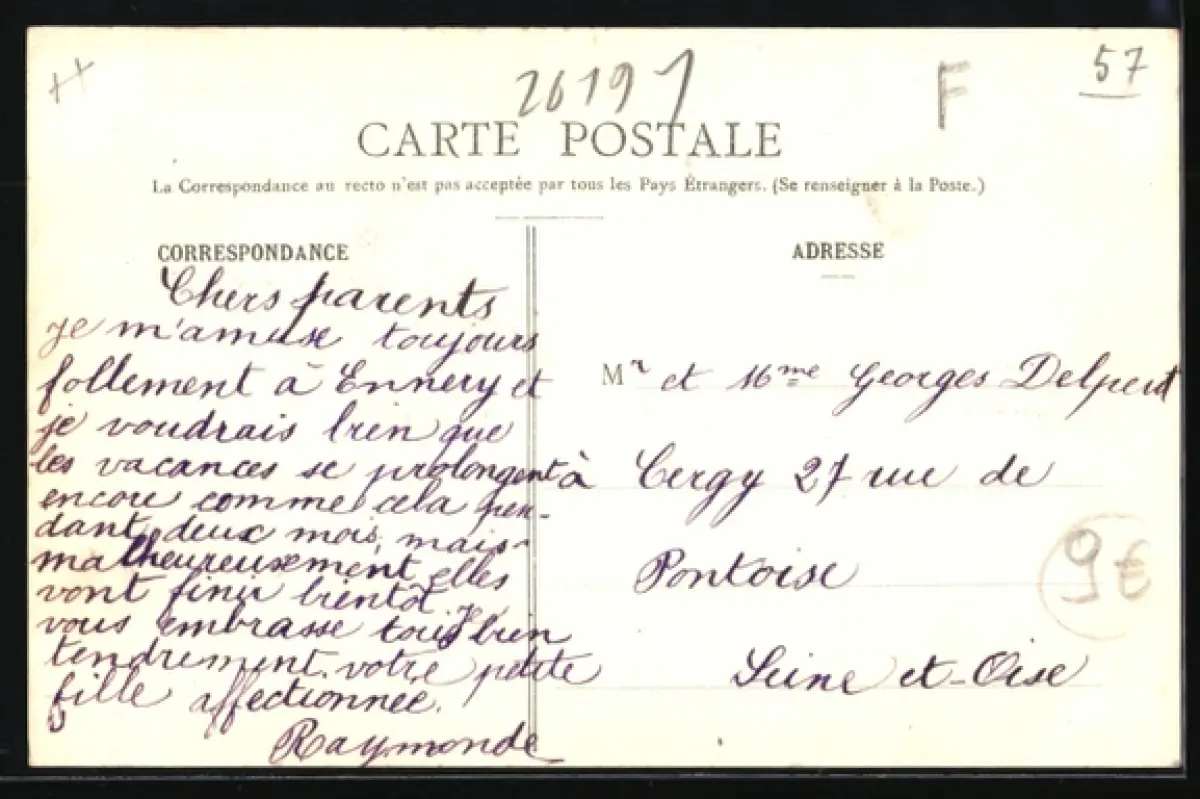 26197
F
57
CARTE POSTALE
La Correspondance au recto n'est pas acceptée par tous les Pays Étrangers. (Se renseigner à la Poste.)
CORRESPONDANCE
Chers parents
je m'amuse toujours
follement à Ennery et
je voudrais bien que
les vacances se prolongent
encore comme cela pen-
dant deux mois, mais
malheureusement elles
vont finir bientôt Je
vous embrasse tous bien
tendrement. votre petite
fille affectionnée.
Raymonde
ADRESSE
Mr et Mme Georges
à Cergy 27 rue de
Pontoise
Seine et-Oise
9€